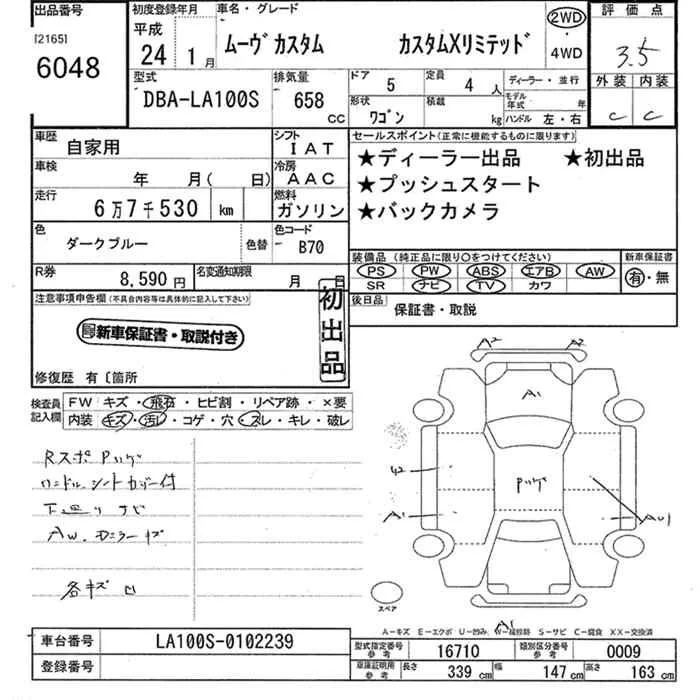 出品番号
[2165]
6048
初度登録年月
平成
24 1月
車名・グレード
ムーヴカスタム カスタムXリミテッド
2WD
・
4WD
評価点
3.5
外装 内装
C C
型式
DBA-LA100S
排気量
658
CC
ドア 5
定員 4人
ディーラー・並行
形状 ワゴン
積載 kg
モデル年式 年
ハンドル 左・右
車歴 自家用
シフト IAT
車検 年 月( 日)
冷房 AAC
走行 6万7千530 km
燃料 ガソリン
色 ダークブルー
色替
色コード B70
R券 8,590円
名変通知期限 月 日
セールスポイント(正常に機能するものに限ります)
★ディーラー出品 ★初出品
★プッシュスタート
★バックカメラ
装備品 (純正品に限り○をつけてください)
PS PW ABS エアB AW
SR ナビ TV カワ
新車保証書
有・無
後日品 保証書・取説
注意事項申告欄(不具合内容等は具体的に記入して下さい)
新車保証書・取説付き
初出品
修復歴 有〔箇所
検査員記入欄
FW キズ・飛石・ヒビ割・リペア跡・×要
内装 キズ・汚レ・コゲ・穴・スレ・キレ・破レ
Rスポ Pハゲ
ハンドル シートカバー付
下廻り サビ
AW.
各キズ凹
A2 A2
A1
Pハゲ
U2
A1
スペア
A1
A-キズ E-エクボ U-凹み W-補修跡 S-サビ C-腐食 XX-交換済
車台番号 LA100S-0102239
登録番号
型式指定番号参考 16710
類別区分番号参考 0009
車庫証明用参考 長さ 339 cm 幅 147 cm 高さ 163 cm